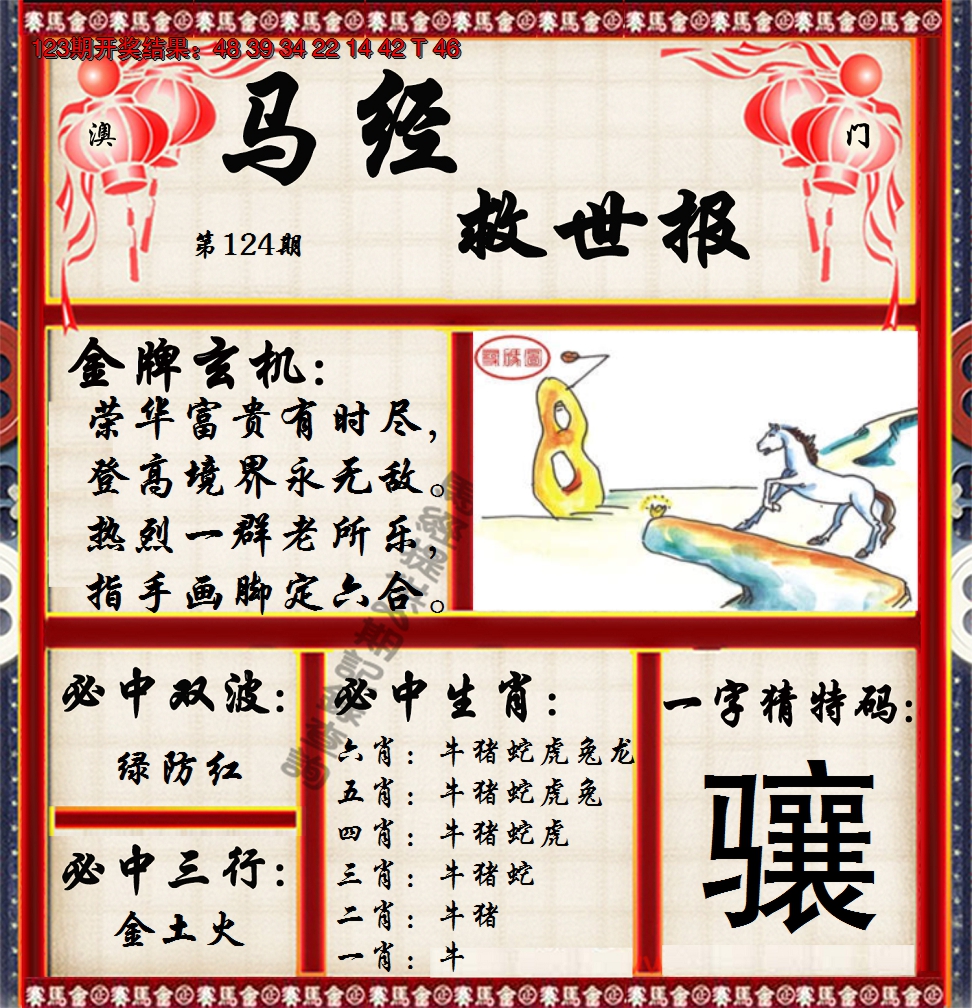 賽馬會
123期开奖结果：48 39 34 22 14 42 T 46
澳
门
马经
救世报
第124期
金牌玄机：
荣华富贵有时尽，
登高境界永无敌。
热烈一群老所乐，
指手画脚定六合。
必中双波：
绿防红
必中三行：
金土火
必中生肖：
六肖：牛猪蛇虎兔龙
五肖：牛猪蛇虎兔
四肖：牛猪蛇虎
三肖：牛猪蛇
二肖：牛猪
一肖：牛
一字猜特码：
骧
賽馬會